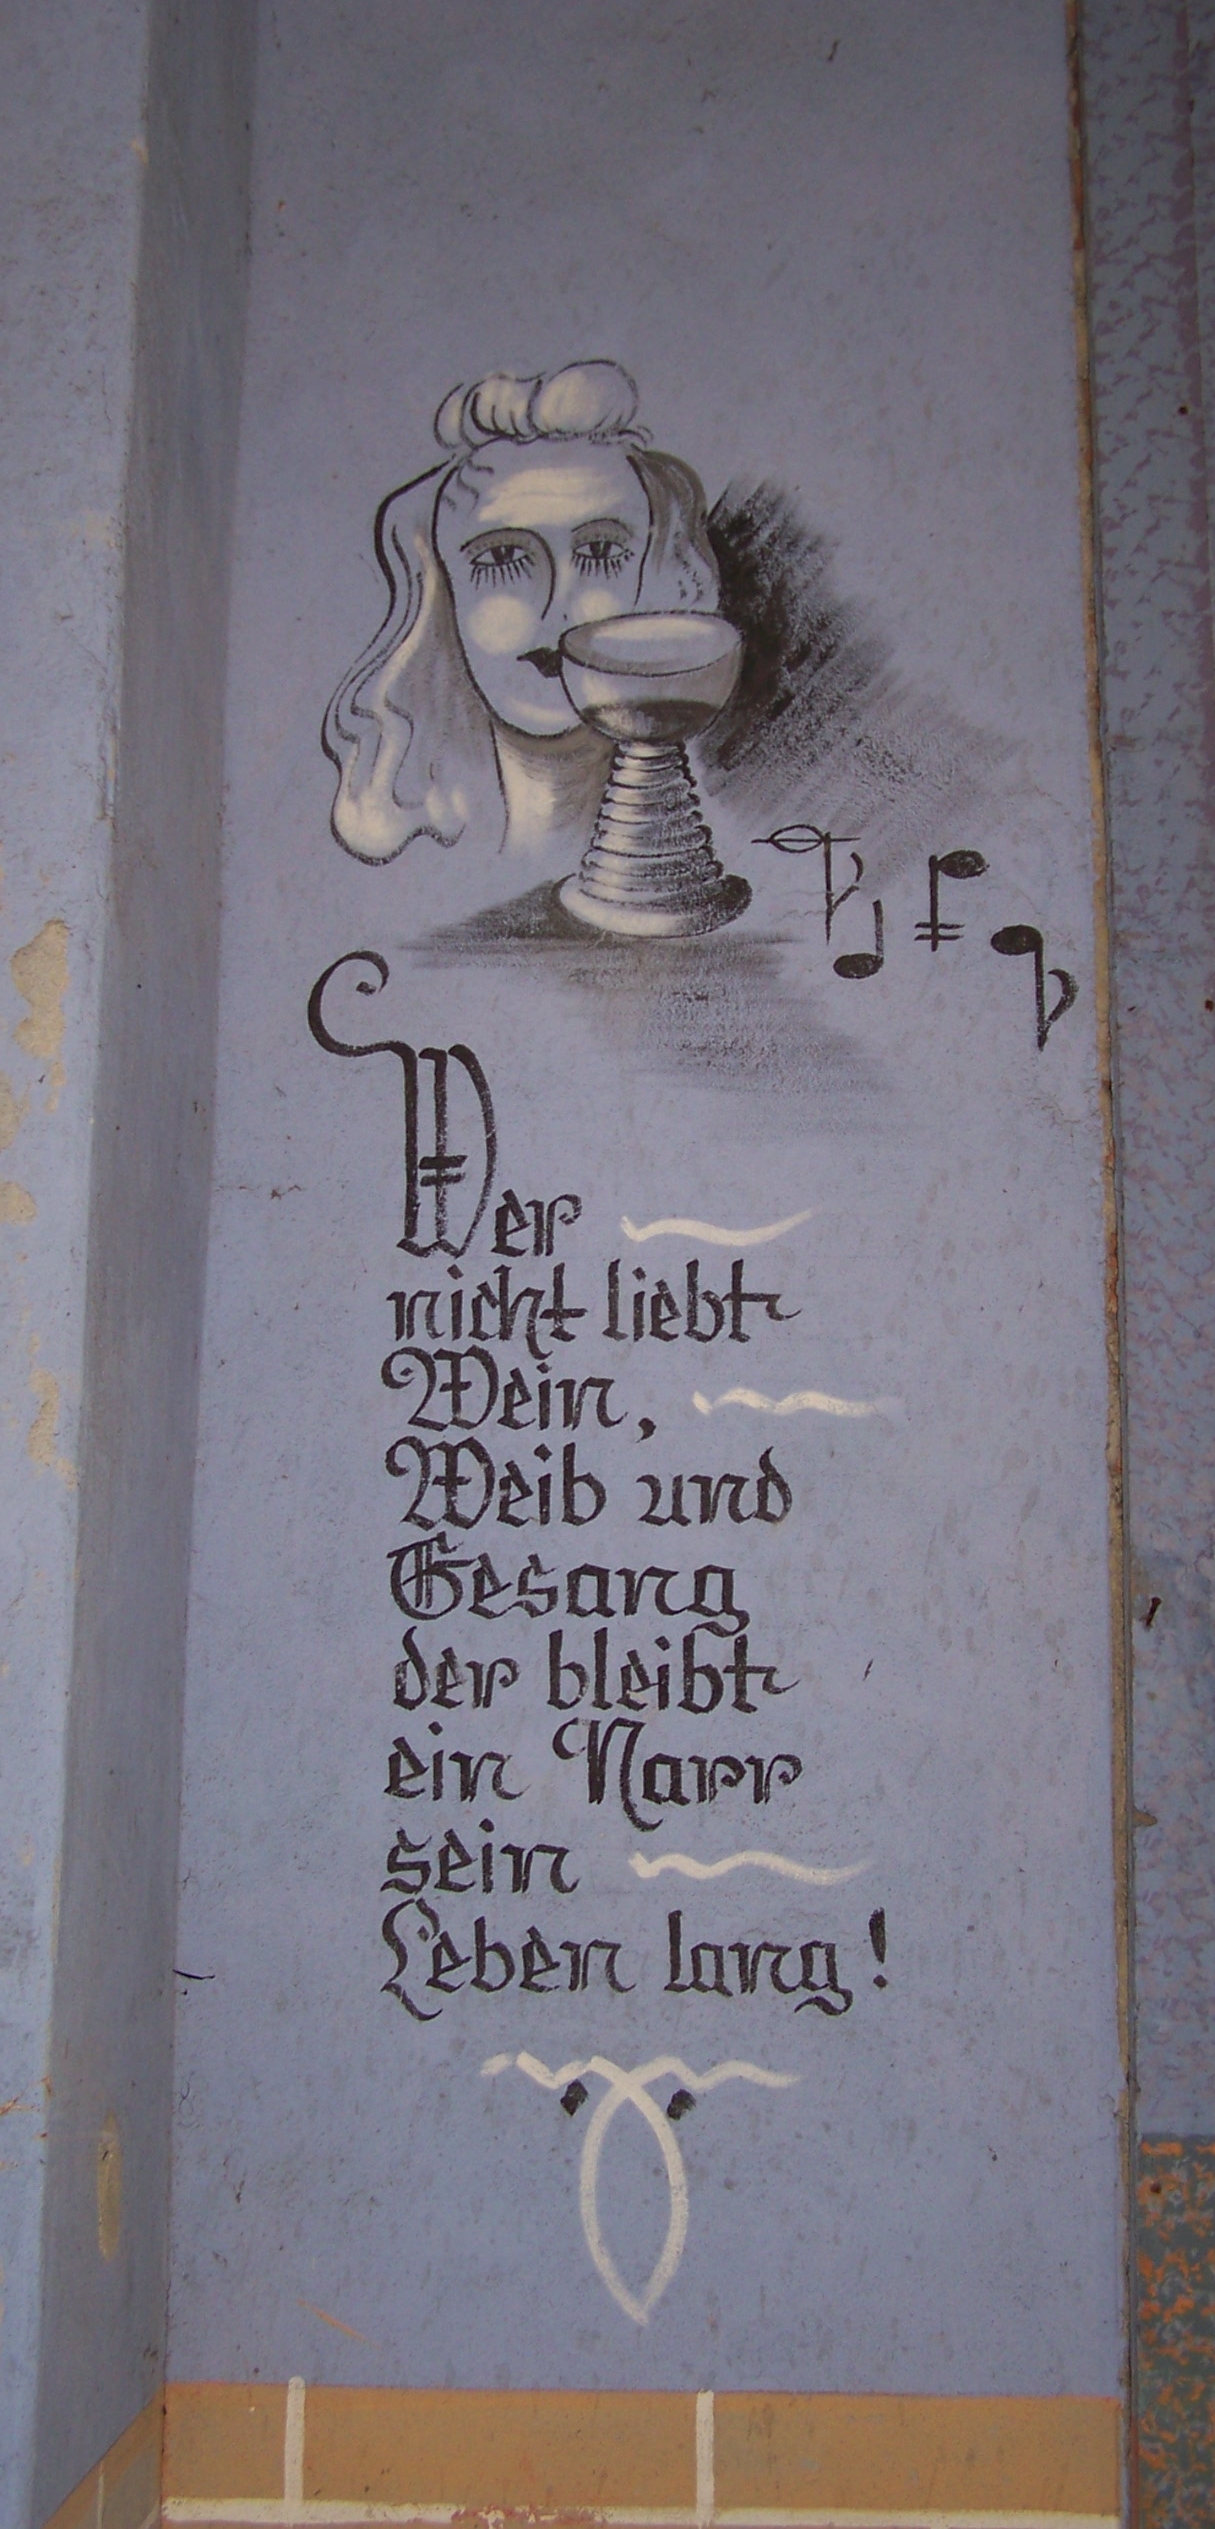 Wer
nicht liebt
Wein,
Weib und
Gesang
der bleibt
ein Narr
sein
Leben lang!